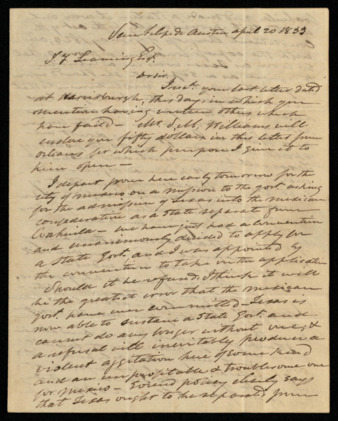 San Felipe de Austin april 20 1833
Leaming Esqr.
Dr sir
I recd. your last letter dated
at Harrisburgh, this day in which you
mention having written others which
have failed - Mr. S. M. Williams will
enclose you fifty dollars in this letter from
Orleans for which purpose I give it to
him open -
I depart from here early tomorrow for the
city of mexico on a mission to the govt. asking
for the admission of Texas into the mexican
confederation as a State separate from
Coahuila - we have just had a convention
and unanimously decided to apply for
a State Govt. and I was appointed by
the convention to take on the application
Should it be refused, I think it will
be the greatest error that the mexican
govt. have ever committed - Texas is
now able to sustain a State Govt. and
cannot do any longer without one, &
a refusal will inevitably produce a
violent agitation here of some kind
and an unprofitable & troublesome one
for Mexico - Sound policy clearly says
that Texas ought to be separated from